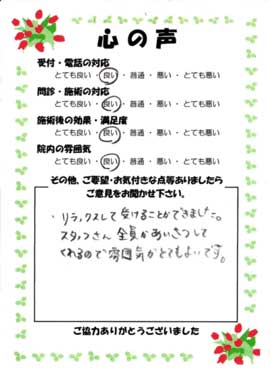 心の声
受付・電話の対応
とても良い・良い・普通・悪い・とても悪い
問診・施術の対応
とても良い・良い・普通・悪い・とても悪い
施術後の効果・満足度
とても良い・良い・普通・悪い・とても悪い
院内の雰囲気
とても良い・良い・普通・悪い・とても悪い
その他、ご要望・お気付きな点等ありましたら
ご意見をお聞かせ下さい。
・リラックスして受けることができました。
スタッフさん全員があいさつして
くれるので雰囲気がとてもよいです。
ご協力ありがとうございました